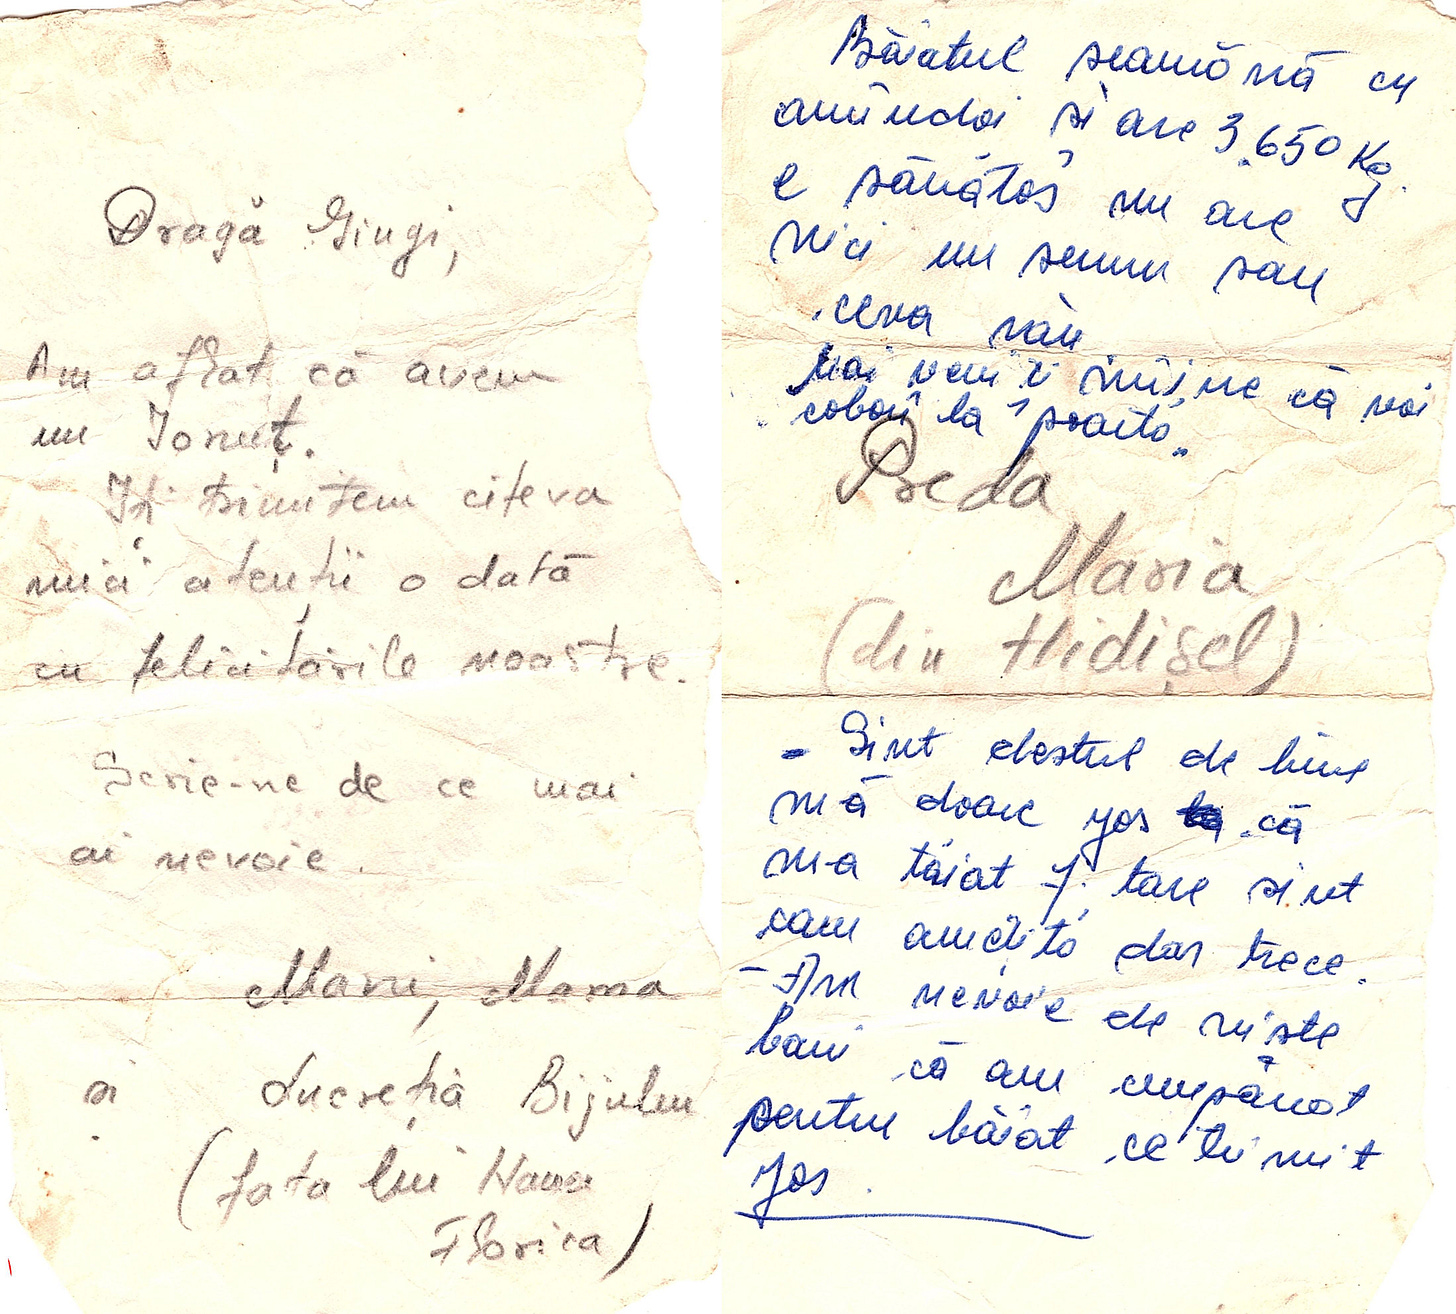 Dragă Giugi,
Am aflat că avem
un Ionuț.
Iți trimitem cîteva
mici atenții o dată
cu felicitările noastre.
Scrie-ne de ce mai
ai nevoie.
Mami, Mama
și Lucreția Bijulin
(fata lui Nana
Florica)
Băiatul seamănă cu
amîndoi și are 3.650 Kg.
e sănătos nu are
nici un semn sau
ceva rău
Mai veniți mîine că voi
coborî la poartă
Preda
Maria
(din Hidișel)
- Sînt destul de bine
mă doare jos că
m-a tăiat f. tare sînt
cam amețită dar trece.
- Am nevoie de niște
bani că am cumpărat
pentru băiat ce trimit
jos.